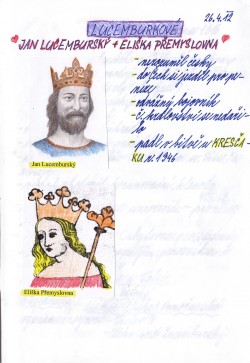 26.4.12
LUCEMBURKOVÉ
JAN LUCEMBURSKÝ + ELIŠKA PŘEMYSLOVNA
- nerozuměl česky
- do Čech si jezdil pro pe-
níze
- udatný bojovník
- čl. království se nedaři-
lo
- padl v bitvě u KRESČA-
KU r. 1946
Jan Lucemburský
Eliška Přemyslovna